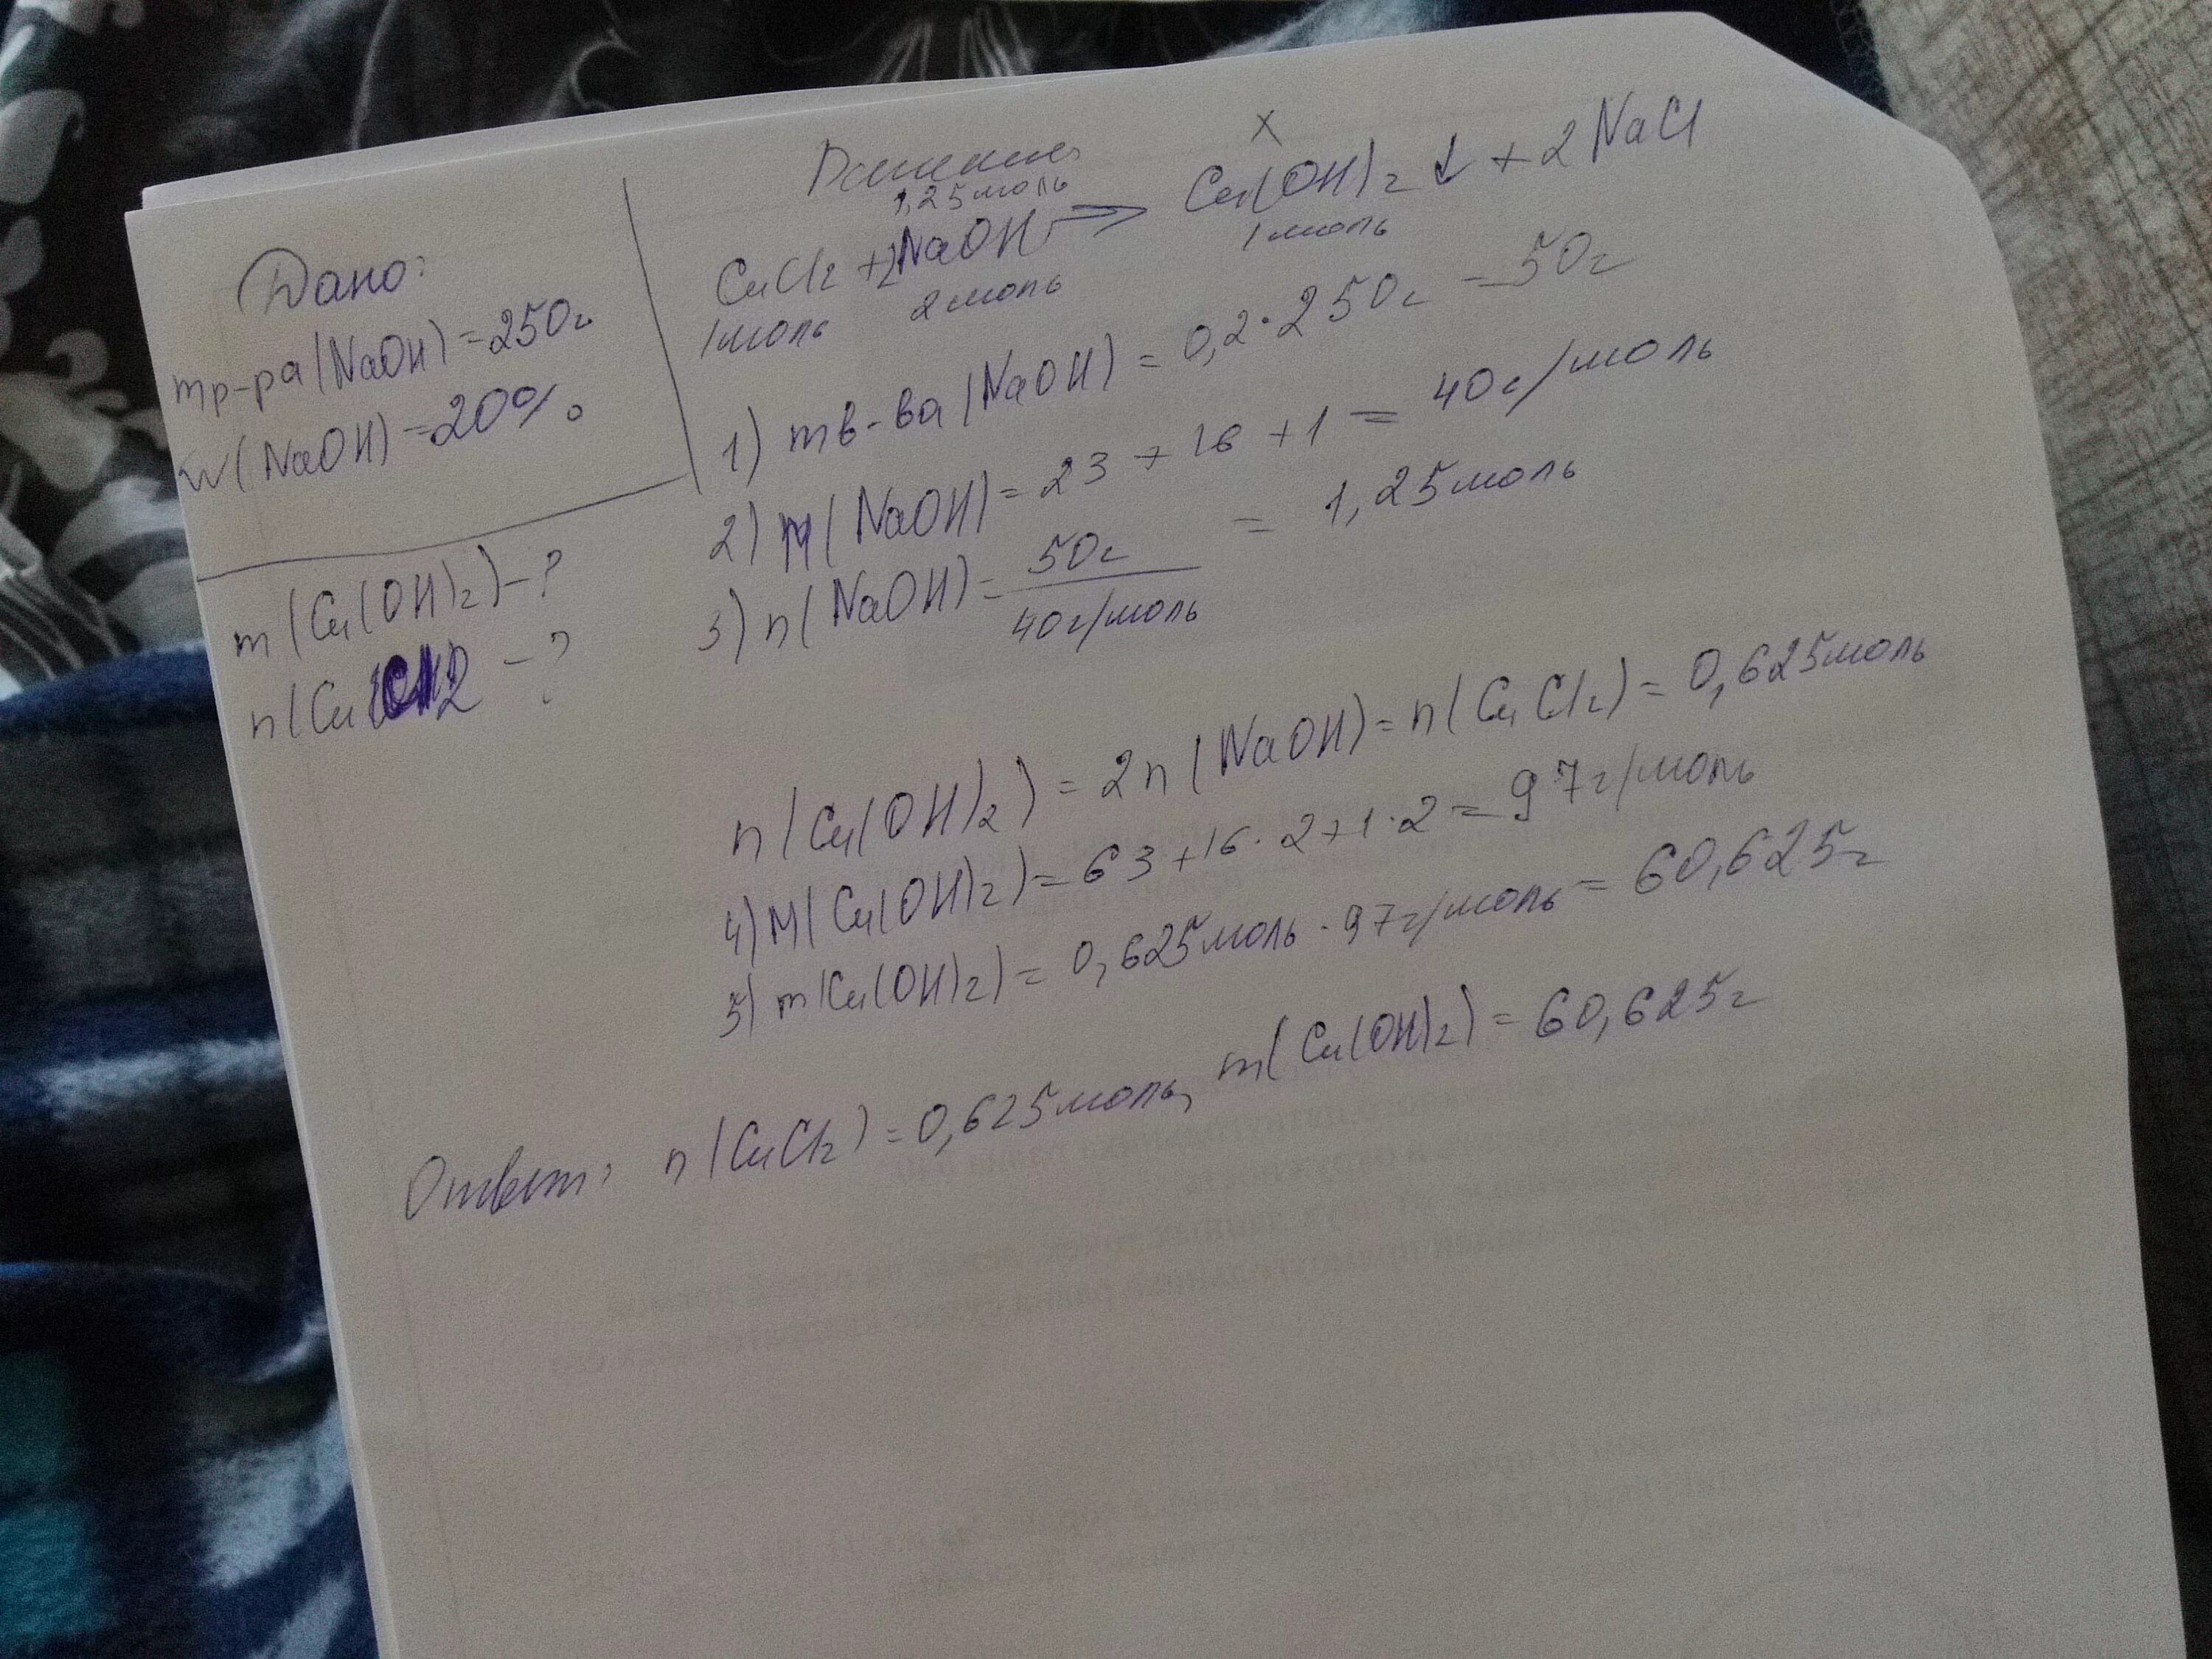 Дано:
mр-ра(NaOH)=250г
w(NaOH)=20%
m(Cu(OH)2)-?
n(CuCl2 -?
Решение:
1,25моль x
CuCl2 +2NaOH → Cu(OH)2 ↓ + 2NaCl
1моль 2моль 1моль
1) mв-ва(NaOH) = 0,2·250г = 50г
2) M(NaOH) = 23 + 16 + 1 = 40г/моль
3) n(NaOH) = 50г / 40г/моль = 1,25моль
n(Cu(OH)2) = 2n(NaOH) = n(CuCl2) = 0,625моль
4) M(Cu(OH)2) = 63 + 16·2 + 1·2 = 97г/моль
5) m(Cu(OH)2) = 0,625моль·97г/моль = 60,625г
Ответ: n(CuCl2) = 0,625моль, m(Cu(OH)2) = 60,625г